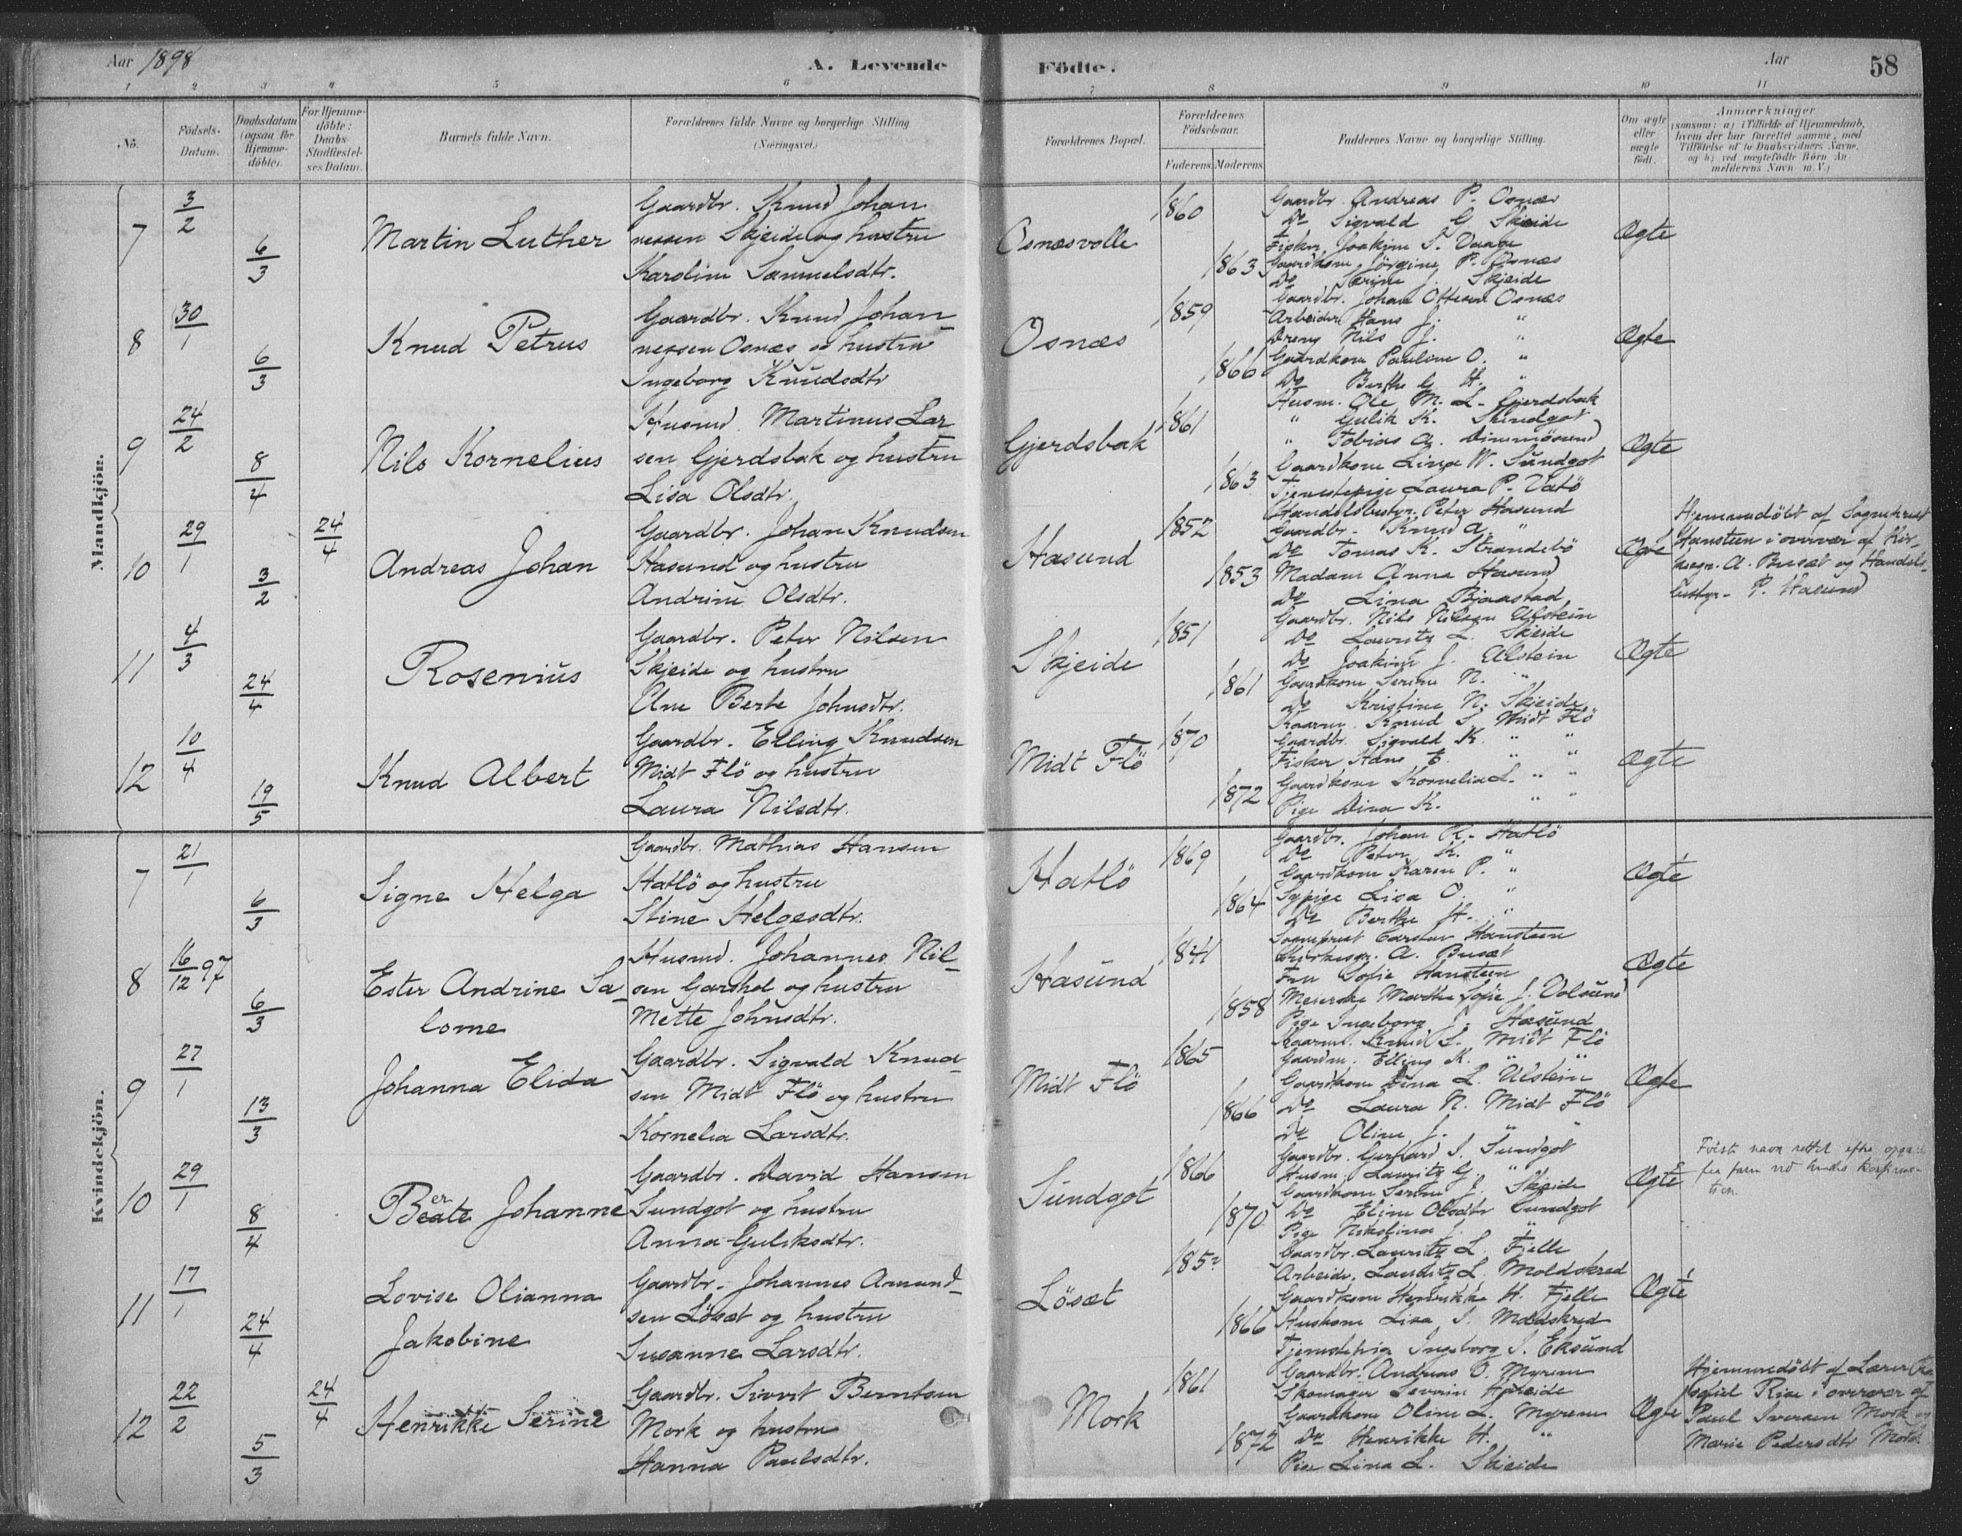 Aar 1898 A. Levende Födte. Aar 58
1 2 3 4 5 6 7 8 9 10 11
No. Födsels-Datum. Daabsdatum (ogsaa för Hjemme-döbte). For Hjemme-döbte: Daabs-Stadfæstel-ses Datum. Barnets fulde Navn. Forældrenes fulde Navne og borgerlige Stilling (Næringsvei.)
Forældrenes Bopæl. Forældrenes Födselsaar. Faderens. Moderens. Faddernes Navne og borgerlige Stilling. Om ægte eller uægte födt. Anmærkninger
(saasom: a) i Tilfælde af Hjemmedaab, hvem der har forrettet samme, med Tilföielse af to Daabsvidners Navne, og b) ved uægtefödte Börn An-melderens Navn m. V.)
Mandkjön.
7 3/2 6/3 Martin Luther
Gaardbr. Knud Johan
nessen Skjeide og hustru
Karoline Samuelsdtr.
Osnæsvolle 1860 1863
Gaardbr. Andreas P. Osnæs
Do Sigvald G. Skeide
Fisker Joakim S. Vaage
Gaardkone Jörgine P. Osnæs
Do Serine J. Skjeide
Ægte
8 30/1 6/3 Knud Petrus
Gaardbr. Knud Johan
nessen Osnæs og hustru
Ingeborg Knudsdtr
Osnæs 1859 1866
Gaardbr. Johan Ottesen Osnæs
Arbeider Hans J. "
Dreng Nils J. "
Gaardkone Pauline O. "
Do Berthe G. H. "
Ægte
9 24/2 8/4 Nils Kornelius
Husmd. Martinus Lar
sen Gjerdsbak og hustru
Lisa Olsdtr.
Gjerdsbak 1861 1863
Husm. Ole M. L. Gjerdsbak
" Gulik K. Sundgot
" Tobias A. Dimmösund
Gaardkone Lina W. Sundgot
Tjenestepige Laura P. Vatö
Ægte
10 29/1 3/2 24/4 Andreas Johan
Gaardbr. Johan Knudsen
Hasund og hustru
Andrine Olsdtr.
Hasund 1852 1853
Handelsbestyr. Peter Hasund
Gaardbr. Knud A. "
Do Tomas K. Strandebö
Madam Anna Hasund
Do Lina Bjaastad
Ægte
Hjemmedöbt af Sogneprest
Hansteen i overvær af Kir-
kesgr. A. Busæt og Handels-
bestyr. P. Hasund
11 4/3 24/4 Rosenius
Gaardbr. Peter Nilsen
Skjeide og hustru
Ane Berte Johnsdtr.
Skjeide 1851 1861
Gaardbr. Nils Nilsen Ulstein
Do Lauritz L. Skeide
Do Joakim J. Ulstein
Gaardkone Serine N. "
Do Kristine N. Skjeide
Ægte
12 10/4 19/5 Knud Albert
Gaardbr. Elling Knudsen
Midt Flö og hustru
Laura Nilsdtr.
Midt Flö 1870 1872
Kaarm. Knud S. Midt Flö
Gaardbr. Sigvald K. " "
Fisker Hans E. " "
Gaardkone Kornelia L. " "
Pige Dina K. " "
Ægte
Kvindekjön.
7 21/1 6/3 Signe Helga
Gaardbr. Mathias Hansen
Hatlö og hustru
Stine Helgesdtr.
Hatlö 1869 1864
Gaardbr. Johan K. Hatlö
Do Peter K. "
Gaardkone Karen P. "
Sypige Lisa O. "
Do Berthe H. "
Ægte
8 16/12 97 6/3 Ester Andrine Sa-
lome
Husmd. Johannes Nil-
sen Garshol og hustru
Mette Johnsdtr.
Hasund 1841 1858
Sogneprest Carsten Hansteen
Kirkesgr. A. Busæt
Fru Sofie Hansteen
Meierske Marthe Sofie J. Volsund
Pige Ingeborg J. Hasund
Ægte
9 27/1 13/3 Johanna Elida
Gaardbr. Sigvald Knud-
sen Midt Flö og hustru
Kornelia Larsdtr.
Midt Flö 1865 1866
Kaarm. Knud S. Midt Flö
Gaardm. Elling K. " "
Gaardkone Lina L. Ulstein
Do Laura N. Midt Flö
Do Oline J. " "
Ægte
10 29/1 8/4 Beate er Johanne
Gaardbr. David Hansen
Sundgot og hustru
Anna Guliksdtr.
Sundgot 1866 1870
Gaardbr. Gerhard S. Sundgot
Husm. Lauritz G. "
Gaardkone Serine J. Skjeide
Do Eline Olsdtr Sundgot
Pige Nikoline J. "
Ægte
Første navn rettet efter opgave
fra faren ved hendes konfirma-
tion.
11 17/1 24/4 Lovise Olianna
Jakobine
Gaardbr. Johannes Amund-
sen Lösæt og hustru
Susanne Larsdtr.
Lösæt 1852 1866
Gaardbr. Lauritz L. Fjelle
Arbeider Lauritz L. Moldskred
Gaardkone Henrikke H. Fjelle
Huskone Lisa S. Moldskred
Tjenestepige Ingeborg S. Eksund
Ægte
12 22/2 5/3 24/4 Henrikke Serine
Gaardbr. Sivert Berntsen
Mork og hustru
Hanna Paulsdtr.
Mork 1861 1872
Gaardbr. Andreas O. Myren
Skomager Severin Skeide
Gaardkone Oline L. Myren
Do Henrikke H. "
Pige Lina L. Skjeide
Ægte
Hjemmedöbt af Lærer
Rise i overvær af
Paul Iversen Mork og
Marie Pedersdtr Mork